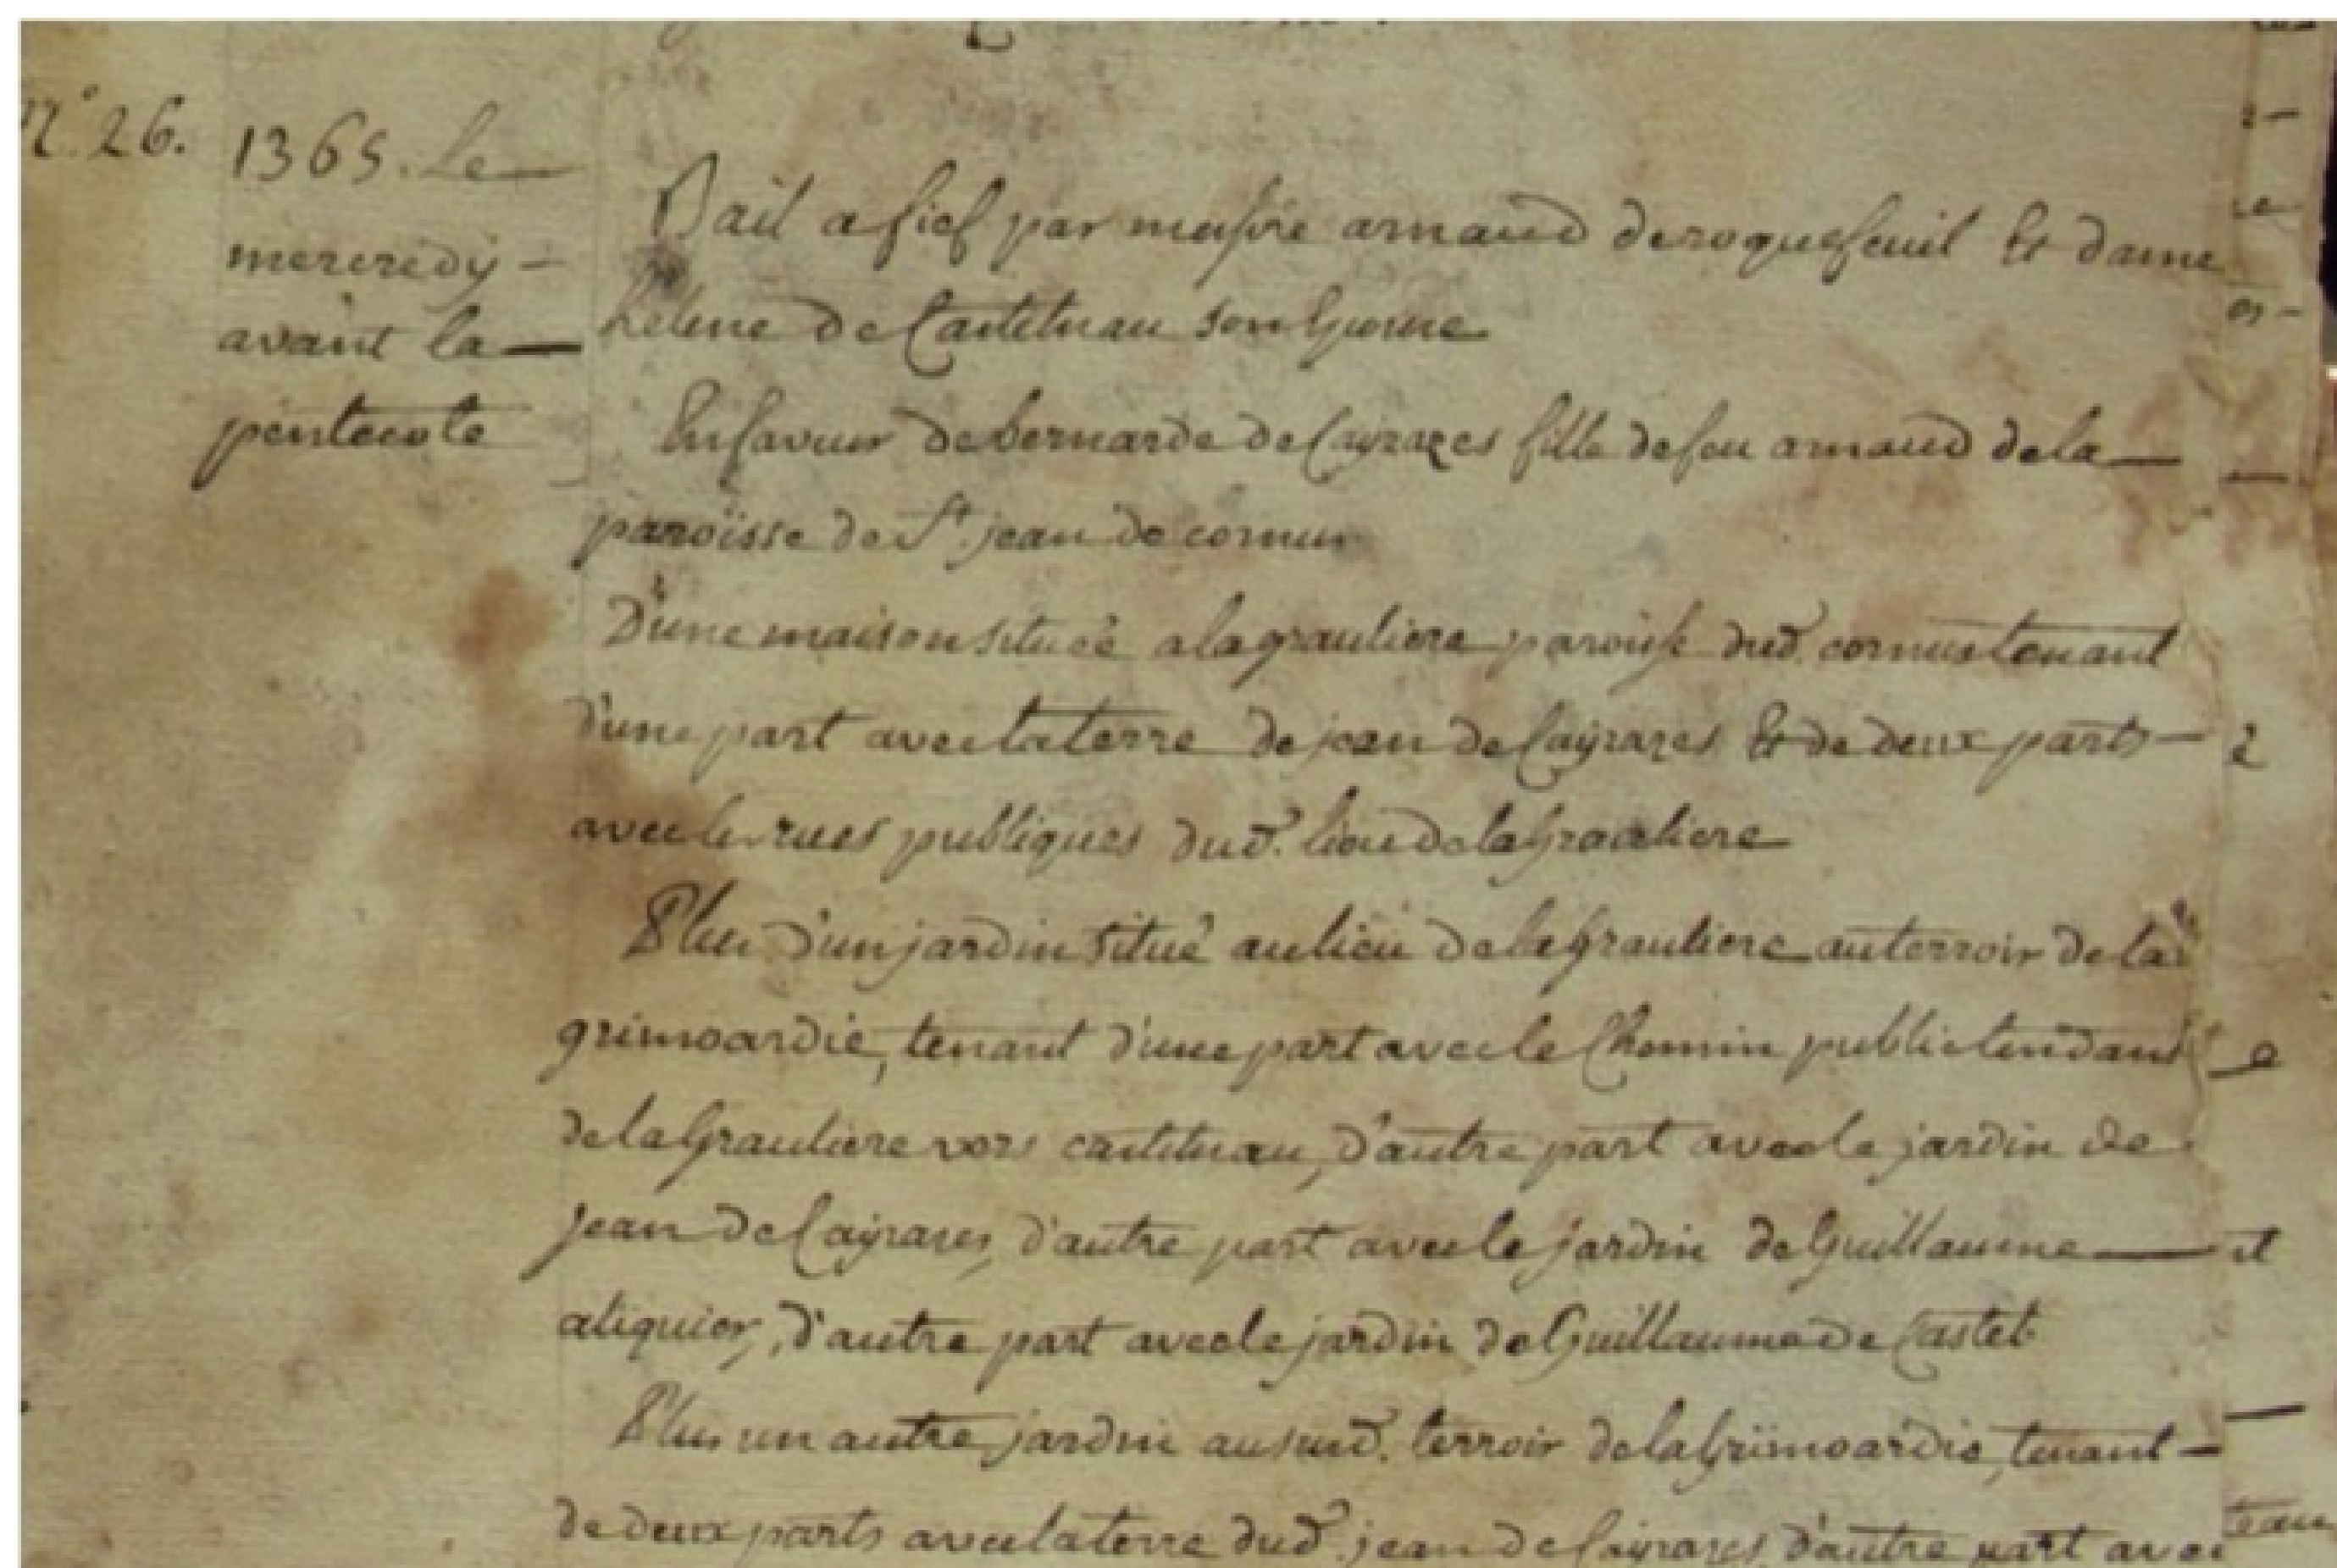 N.° 26.
1365. Le
mercredy
avant la
pentecote
Bail a fief par messire arnaud de roquefeuil Et dame
helene de Castelnau son Epouse
En faveur de bernarde de Cayrazes fille de feu arnaud de la
paroisse de St. jean de cornus
D'une maison située a la grauliere paroisse dud. cornus tenant
d'une part avec la terre de jean de Cayrazes Et de deux parts
avec les rues publiques dud. lieu de la Grauliere
Plus d'un jardin situé au lieu de la Grauliere au terroir de la
grimoardie, tenant d'une part avec le Chemin public tendant
de la Grauliere vers castelnau, d'autre part avec le jardin de
jean de Cayrazes, d'autre part avec le jardin de Guillaume
aliquier, d'autre part avec le jardin de Guillaume de Castel
Plus un autre jardin au susd. terroir de la Grimoardie, tenant
de deux parts avec la terre dud. jean de Cayrazes d'autre part avec